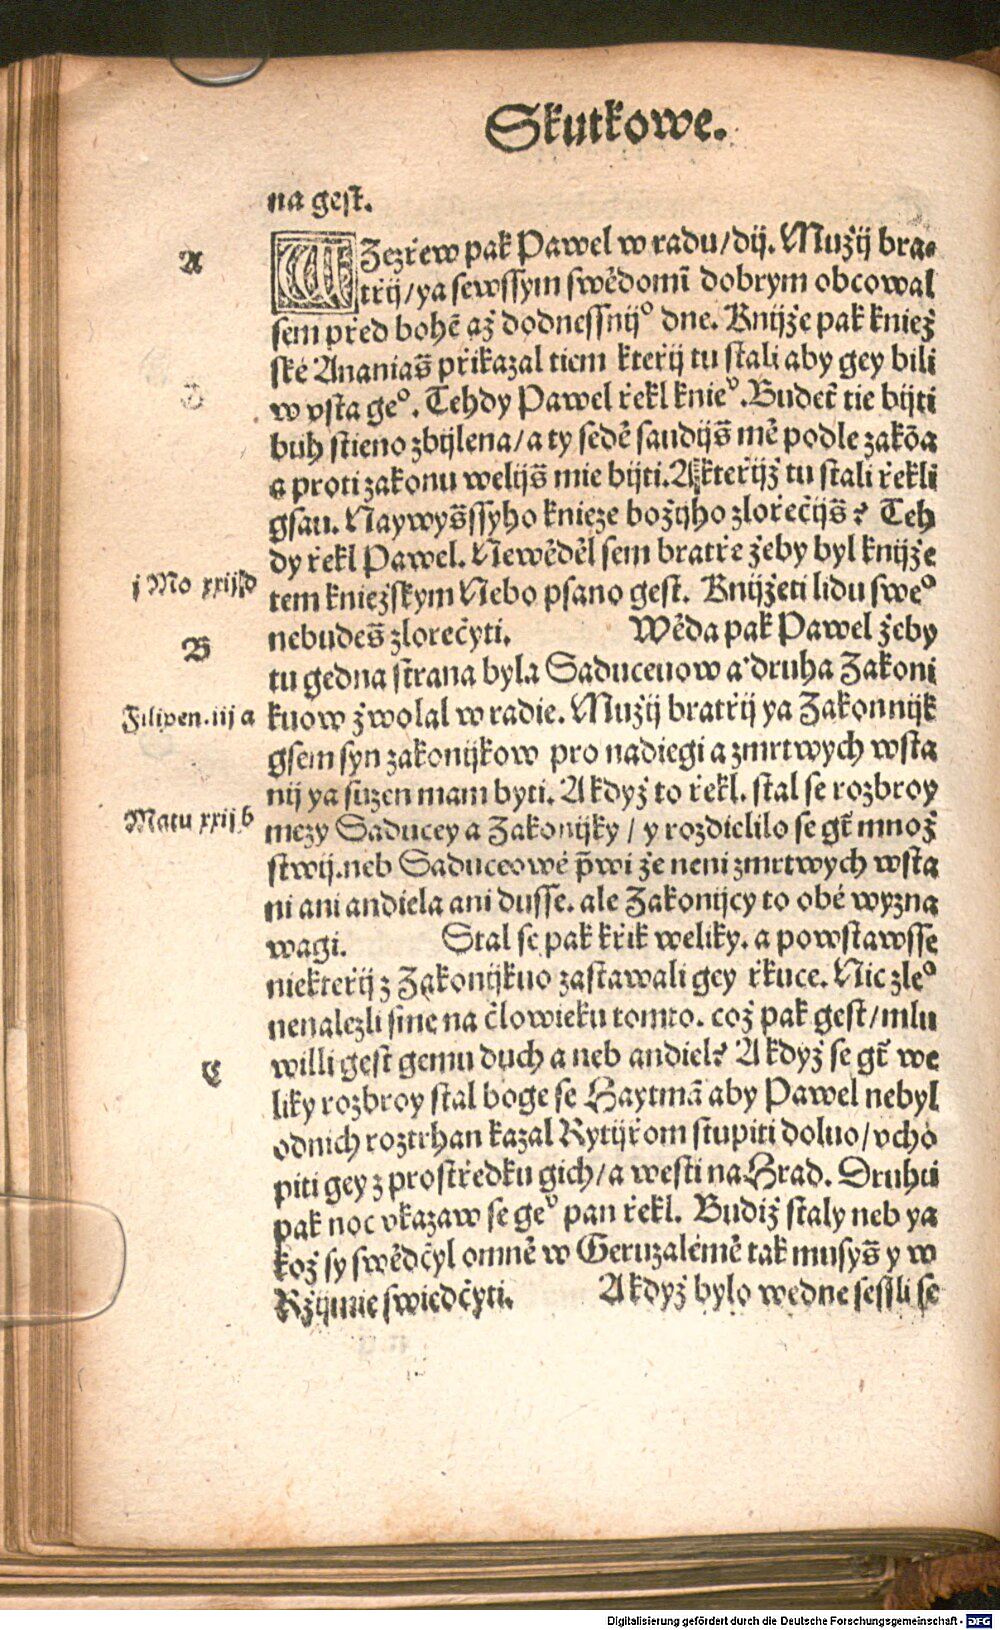 Skutkowe.
na gest.
A
WZezřew pak Pawel w radu/dij. Mužij bra⸗
třij/ya sewssym swědomī dobrym obcowal
sem před bohē až dodnessnijᵒ dne. Knijže pak kniež
ské Ananias̃ přikazal tiem kteřij tu stali aby gey bili
w vsta geᵒ. Tehdy Pawel řekl knieᵛ. Budet̃ tie bijti
buh stieno zbijlena/a ty sedě saudijs̃ mě podle zakōa
a proti zakonu welijs̃ mie bijti. A kteřijž tu stali řekli
gsau. Naywys̃ssyho knieze božijho zlořečijs̃? Teh
dy řekl Pawel. Newěděl sem bratře žeby byl knijže
j Mo xxij d
tem kniežskym Nebo psano gest. Knijžeti lidu sweᵒ
B
nebudes̃ zlorečyti. Wěda pak Pawel žeby
tu gedna strana byla Saduceuow a druha Zakoni
Filipen. iij a
kuow zwolal w radie. Mužij bratřij ya Zakonnijk
gsem syn zakonijkow pro nadiegi a zmrtwych wsta
nij ya suzen mam byti. A když to řekl. stal se rozbroy
Matu xxij b
mezy Saducey a Zakonijky / y rozdielilo se gt̃ množ
stwij. neb Saduceowé p̄wi že neni zmrtwych wsta
ni ani andiela ani dusse. ale Zakonijcy to obé wyzna
wagi. Stal se pak křik weliky. a powstawsse
niekteřij z Zakonijkuo zastawali gey řkuce. Nic zleᵒ
nenalezli sme na člowieku tomto. což pak gest/mlu
C
willi gest gemu duch a neb andiel? A když se gt̃ we
liky rozbroy stal boge se Haytmā aby Pawel nebyl
odnich roztrhan kazal Rytijřom stupiti doluo/vcho
piti gey z prostředku gich/a westi na Hrad. Druhú
pak noc vkazaw se geᵛ pan řekl. Budiž staly neb ya
kož sy swědčyl omně w Geruzalémě tak musys̃ y w
Ržijmie swiedčyti. A když bylo wedne sessli se
Digitalisierung gefördert durch die Deutsche Forschungsgemeinschaft - DFG